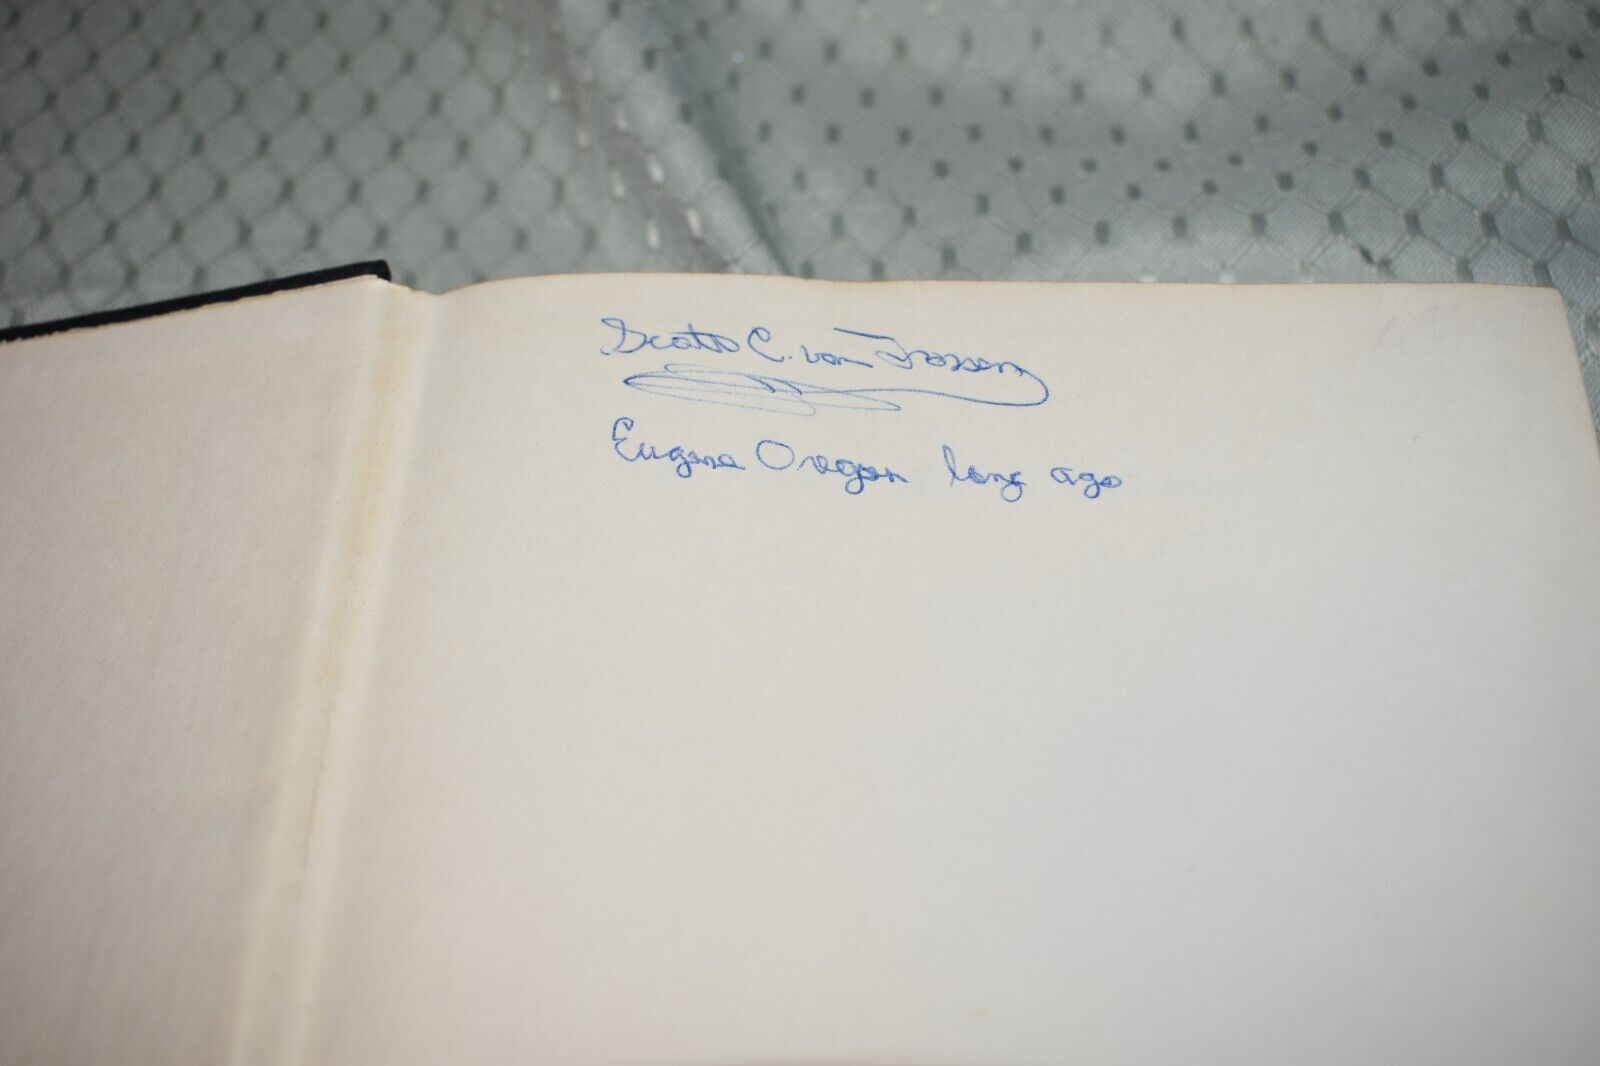 Scott C. van
Eugene Oregon long ago